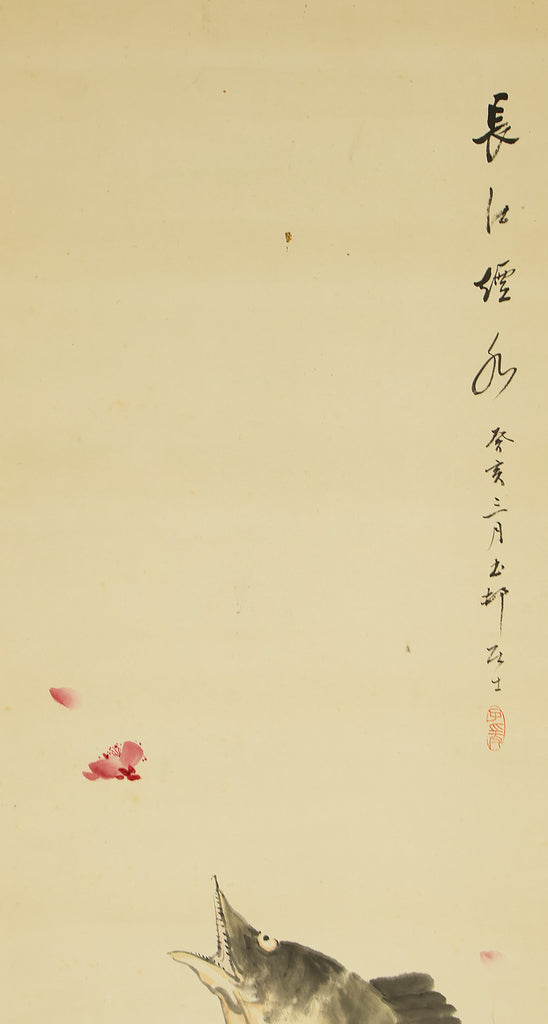 長江煙水
癸亥三月玉邨居士